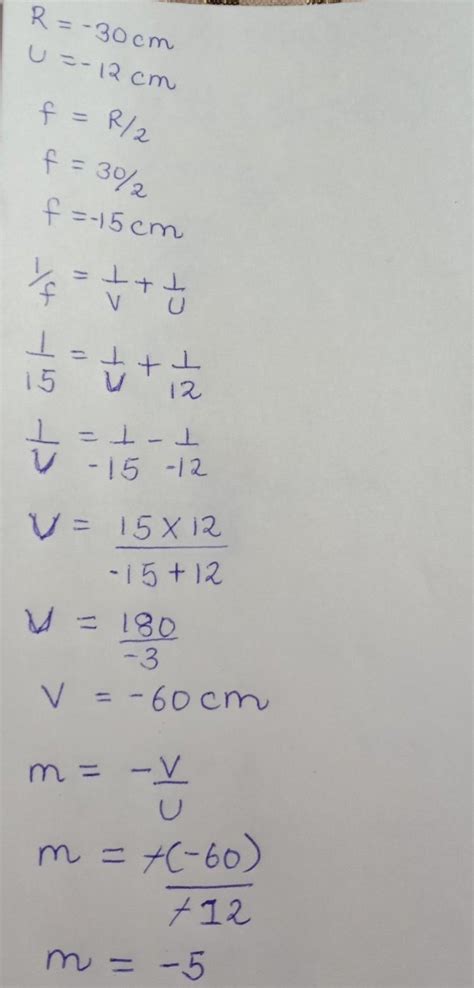 R = -30cm
U = -12 cm
f = R/2
f = 30/2
f = -15cm
1/f = 1/V + 1/U
1/15 = 1/V + 1/12
1/V = 1/-15 - 1/-12
V = 15 X 12/-15 + 12
V = 180/-3
V = -60cm
m = -V/U
m = -(-60)/-12
m = -5